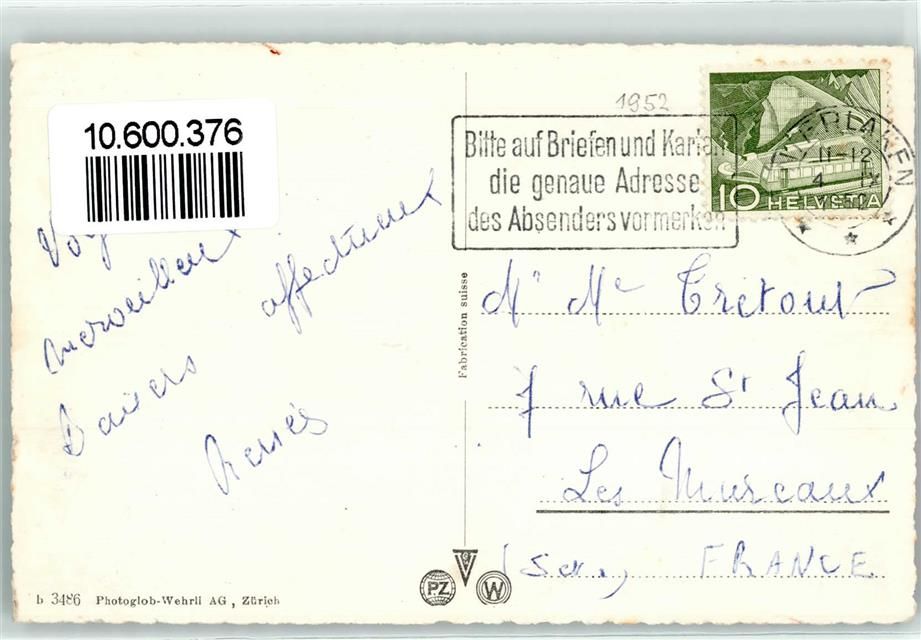 10.600.376
1952
Bitte auf Briefen und Karten
die genaue Adresse
des Absenders vormerken
INTERLAKEN
11-12
4. IX
10 HELVETIA
merveilleux
Baisers affectueux
Fabrication suisse
Mr Me Tretout
7 rue St Jean
Les Mureaux
FRANCE
PZ
W
b 3486 Photoglob-Wehrli AG, Zürich